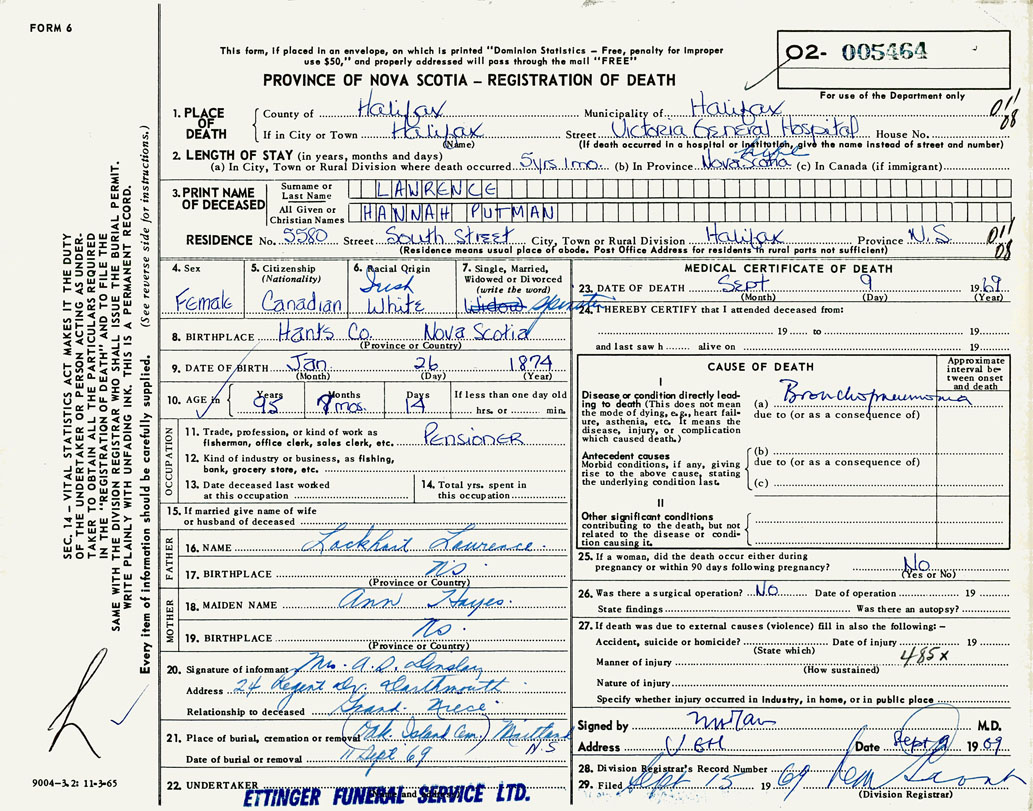 FORM 6
This form, if placed in an envelope, on which is printed "Dominion Statistics – Free, penalty for improper
use $50," and properly addressed will pass through the mail "FREE"
O2- 005464
PROVINCE OF NOVA SCOTIA – REGISTRATION OF DEATH
For use of the Department only
1. PLACE OF DEATH
County of Halifax Municipality of Halifax
011
08
If in City or Town Halifax Street Victoria General Hospital House No.
(Name) (If death occurred in a hospital or institution, give the name instead of street and number)
2. LENGTH OF STAY (in years, months and days) life
(a) In City, Town or Rural Division where death occurred 5yrs. 1mo. (b) In Province Nova Scotia (c) In Canada (if immigrant)
3. PRINT NAME OF DECEASED
Surname or Last Name LAWRENCE
All Given or Christian Names HANNAH PUTMAN
RESIDENCE No. 5580 Street South Street City, Town or Rural Division Halifax Province N.S.
011
08
(Residence means usual place of abode. Post Office Address for residents in rural parts not sufficient)
4. Sex
Female
5. Citizenship
(Nationality)
Canadian
6. Racial Origin
Irish
White
7. Single, Married,
Widowed or Divorced
(write the word)
Widow Spinster
8. BIRTHPLACE Hants Co. Nova Scotia
(Province or Country)
9. DATE OF BIRTH Jan. 26 1874
(Month) (Day) (Year)
10. AGE in Years 95 Months 7 mos. Days 14 If less than one day old
hrs. or min.
OCCUPATION
11. Trade, profession, or kind of work as
fisherman, office clerk, sales clerk, etc. PENSIONER
12. Kind of industry or business, as fishing,
bank, grocery store, etc.
13. Date deceased last worked
at this occupation
14. Total yrs. spent in
this occupation
15. If married give name of wife
or husband of deceased
FATHER
16. NAME Lockhart Lawrence.
17. BIRTHPLACE NS
(Province or Country)
MOTHER
18. MAIDEN NAME Ann Hayes.
19. BIRTHPLACE NS.
(Province or Country)
20. Signature of informant Mrs. A.D.
Address 24 Regent Dr. Dartmouth
Relationship to deceased Grand Niece
21. Place of burial, cremation or removal (Oak Island Cem.) Maitland
N.S
Date of burial or removal 11 Sept 69
22. UNDERTAKER ETTINGER FUNERAL SERVICE LTD.
(Name and address)
MEDICAL CERTIFICATE OF DEATH
23. DATE OF DEATH Sept 9 1969
(Month) (Day) (Year)
24. I HEREBY CERTIFY that I attended deceased from:
19 to 19
and last saw h alive on 19
CAUSE OF DEATH
Approximate
interval be-
tween onset
and death
I
Disease or condition directly lead-
ing to death (This does not mean
the mode of dying, e.g., heart fail-
ure, asthenia, etc. It means the
disease, injury, or complication
which caused death.)
(a) Bronchopneumonia
due to (or as a consequence of)
Antecedent causes
Morbid conditions, if any, giving
rise to the above cause, stating
the underlying condition last.
(b)
due to (or as a consequence of)
(c)
II
Other significant conditions
contributing to the death, but not
related to the disease or condi-
tion causing it.
25. If a woman, did the death occur either during
pregnancy or within 90 days following pregnancy? No
(Yes or No)
26. Was there a surgical operation? NO Date of operation 19
State findings Was there an autopsy?
27. If death was due to external causes (violence) fill in also the following: –
Accident, suicide or homicide? Date of injury 19
(State which)
485x
Manner of injury
(How sustained)
Nature of injury
Specify whether injury occurred in Industry, in home, or in public place
Signed by M.D.
Address VGH Date Sept 9 1969
28. Division Registrar's Record Number
29. Filed Sept 15 1969
(Division Registrar)
SEC. 14 – VITAL STATISTICS ACT MAKES IT THE DUTY
OF THE UNDERTAKER OR PERSON ACTING AS UNDER-
TAKER TO OBTAIN ALL THE PARTICULARS REQUIRED
IN THE "REGISTRATION OF DEATH" AND TO FILE THE
SAME WITH THE DIVISION REGISTRAR WHO SHALL ISSUE THE BURIAL PERMIT.
WRITE PLAINLY WITH UNFADING INK. THIS IS A PERMANENT RECORD.
Every item of information should be carefully supplied. (See reverse side for instructions.)
9004-3.2: 11-3-65